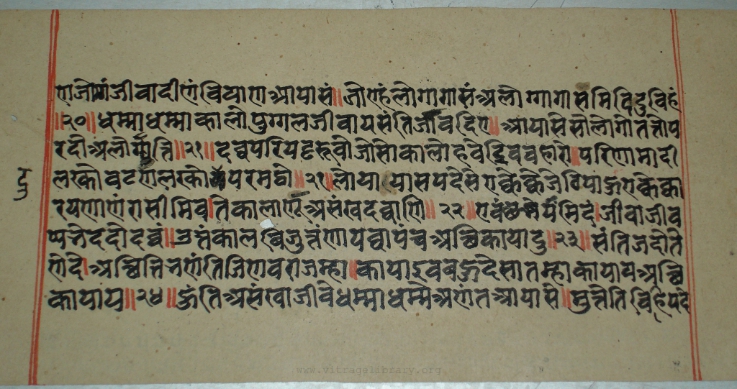 णजोगंजीवादीणंवियाणआयासं॥जोण्हंलोगागासंअलोग्गागासमिविदुविहं
॥२०॥धम्माधम्माकालोपुग्गलजीवायसंतिजावदिए॥आयासेसोलोगोतत्तोप
रदोअलोगुत्ति॥२१॥दव्वपरियट्टरूवोजोसोकालोहवेइववहारो॥परिणामादी
लरकोवट्टणलरकोयपरमट्ठो॥२१॥लोयायासपदेसेएक्केक्केजेठियाऊएक्केका
रयणाणंरासीमिवतिकालाणूअसंखदव्वाणि॥२२॥एवंछप्भेयमिदंजीवाजीव
प्पभेददोदव्वं॥उत्तंकालविजुत्तंणायव्वापंचअत्थिकायादु॥२३॥संतिजदोते
णेदे॥अत्थित्तिभणंतिजिणवराजम्हा॥कायाइवबहुदेसातम्हाकायायअत्थि
कायाय॥२४॥ऊंतिअसंखाजीवेधम्माधम्मेअणंतआयासे॥मुत्तेतिविहपदे
www.vitragelibrary.org